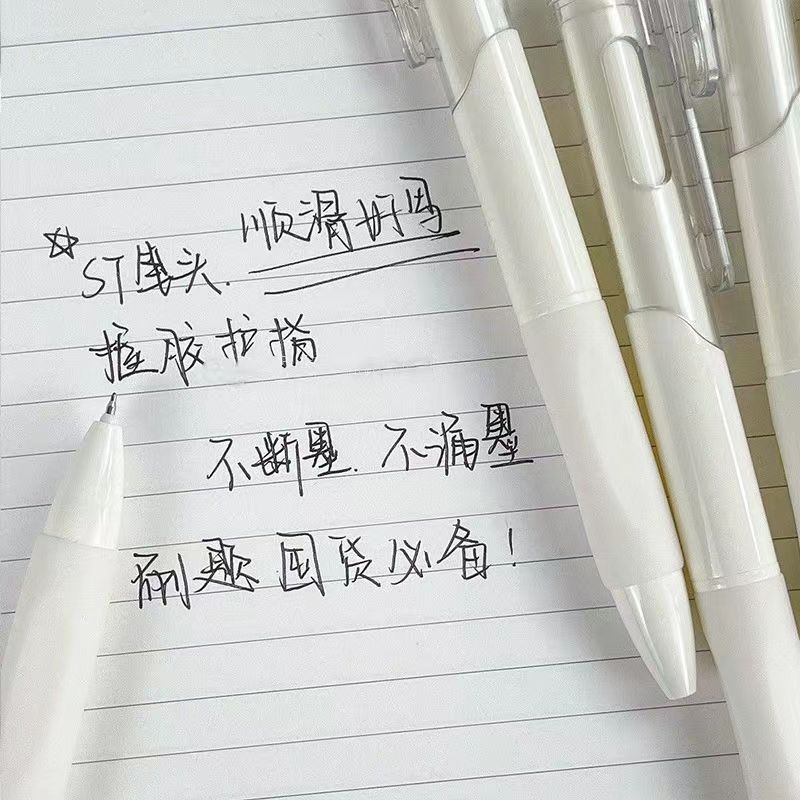 顺滑好写
ST笔头.
握胶护指
不断墨. 不漏墨
刷题囤货必备!